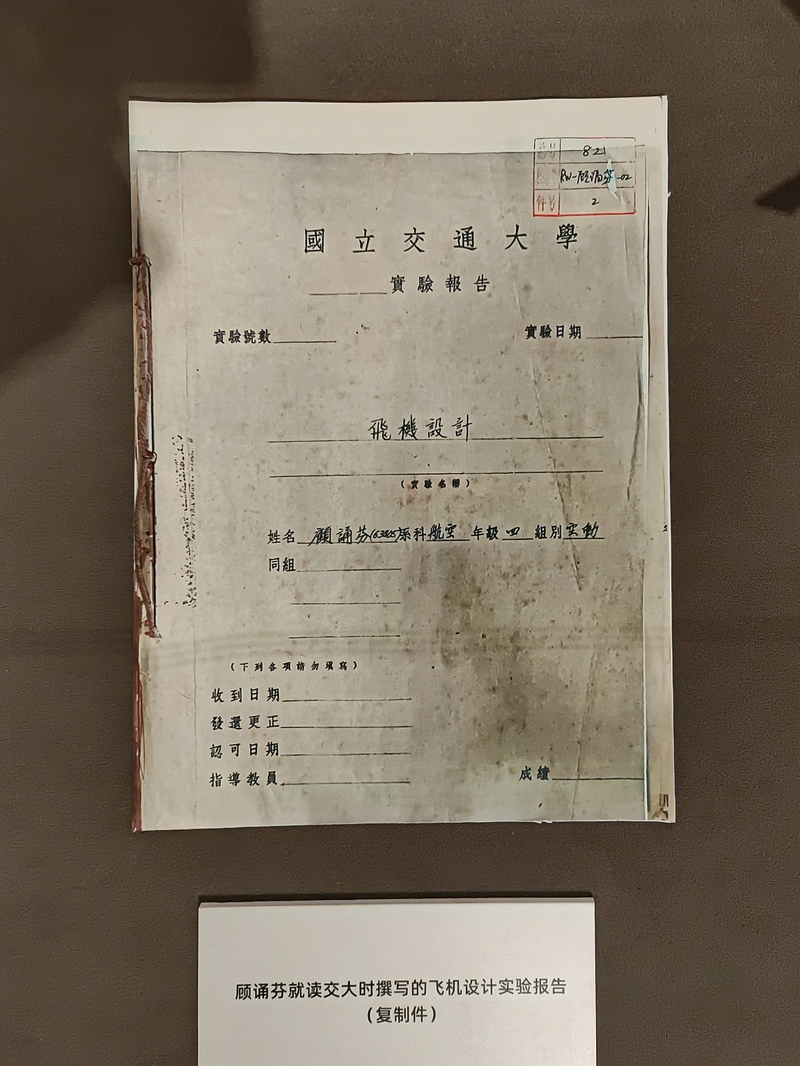 821
RW-顾诵芬-02
件号 2
國立交通大學
實驗報告
實驗號數 實驗日期
飛機設計
(實驗名稱)
姓名 顧誦芬 系科 航空 年級 四 組別 空動
同組
(下列各項請勿填寫)
收到日期
發還更正
認可日期
指導教員 成績
顾诵芬就读交大时撰写的飞机设计实验报告
(复制件)